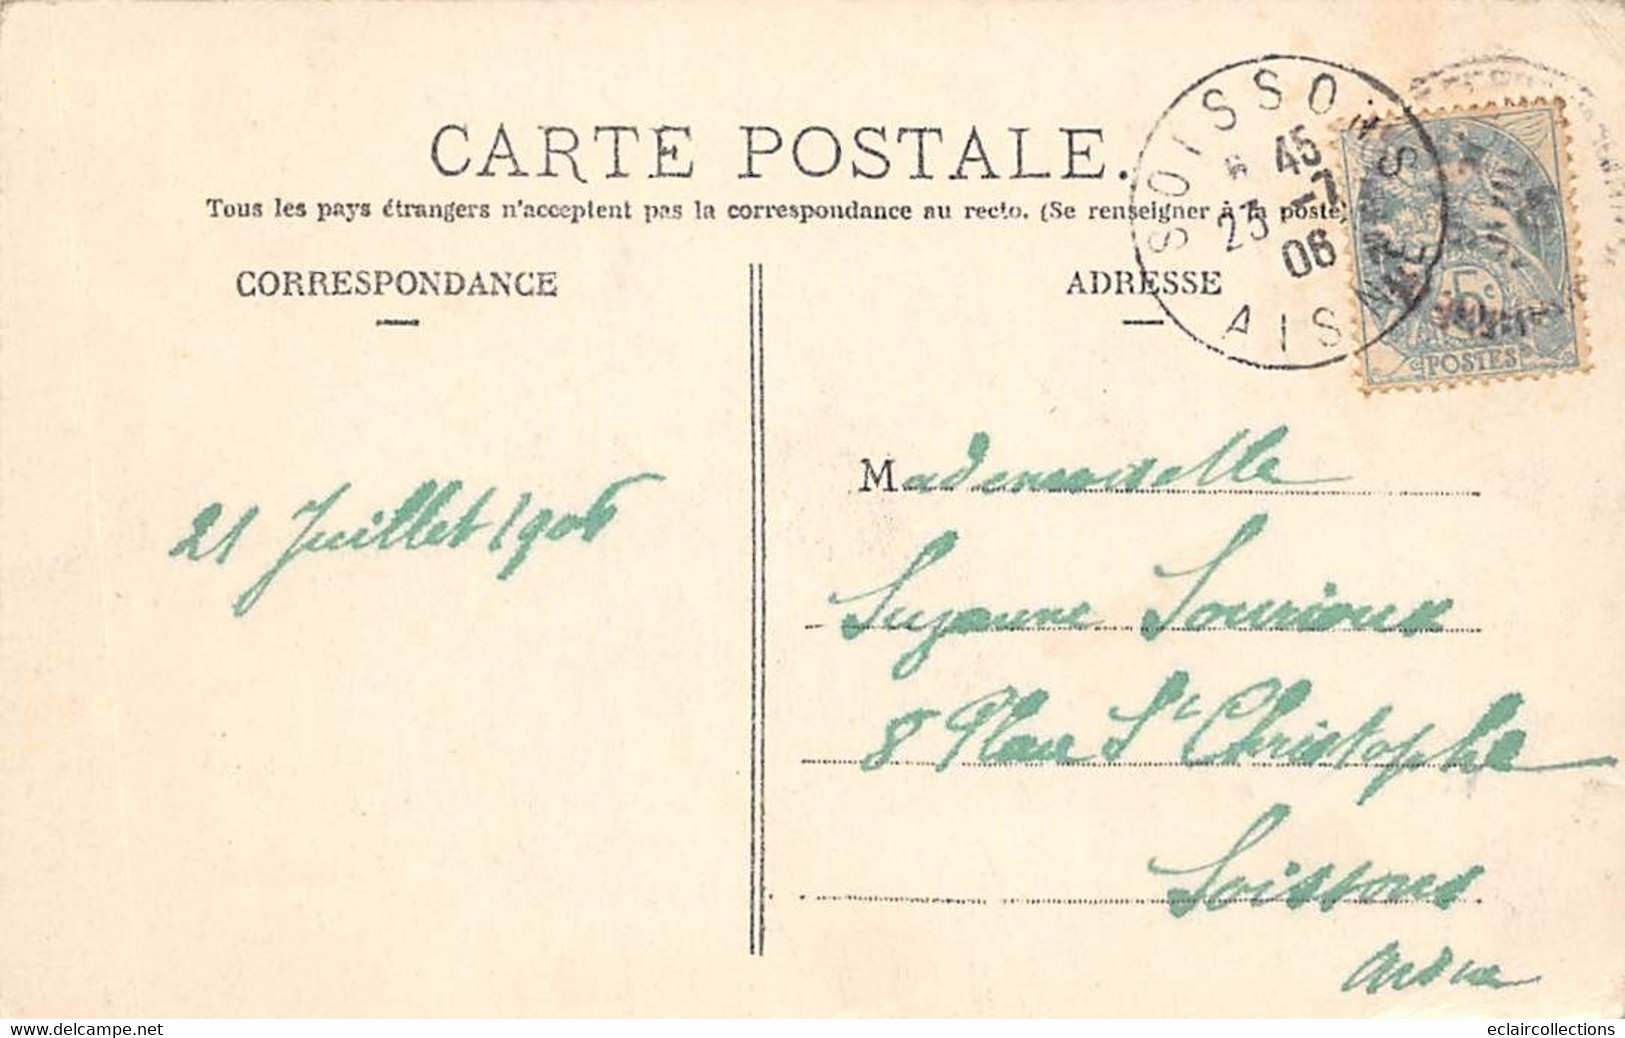 CARTE POSTALE.
Tous les pays étrangers n'acceptent pas la correspondance au recto. (Se renseigner à la poste)
CORRESPONDANCE
ADRESSE
SOISSONS
5 45
23 -7
06
AISNE
5c
POSTES
21 Juillet 1906
Mademoiselle
Suzanne Sourioux
8 Place St Christophe
Soissons
Aisne
www.delcampe.net
eclaircollections